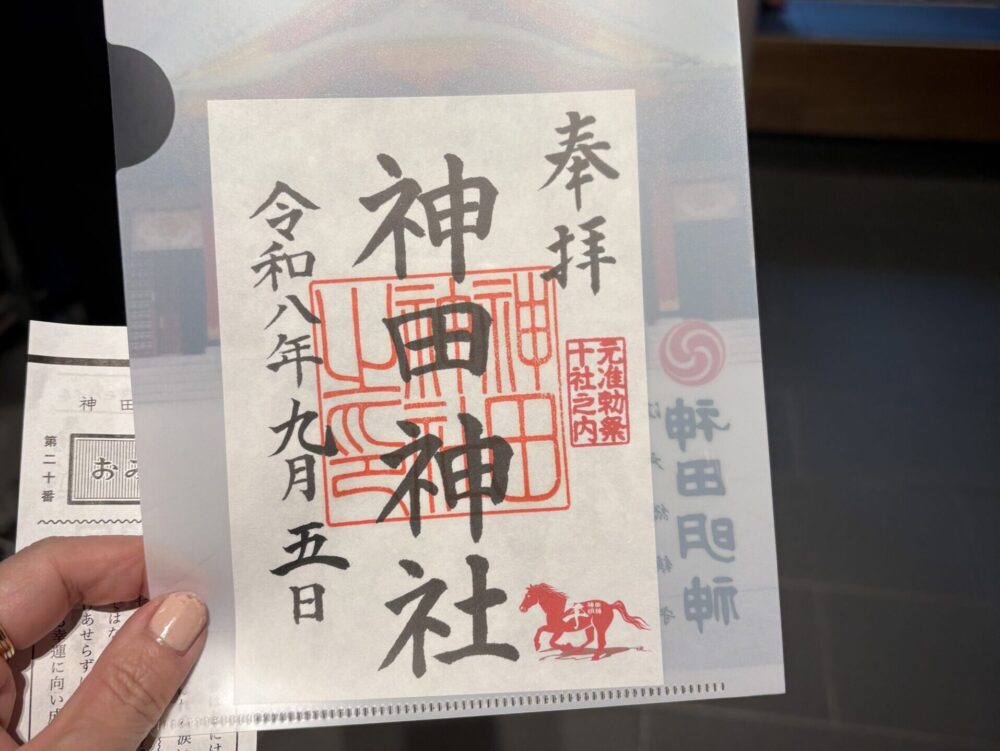 奉拝
元准勅祭
十社之内
神田神社
神田
神社
之印
令和八年九月五日
神田明神
神田
第二十番
おみ
あせらず
幸運に向い